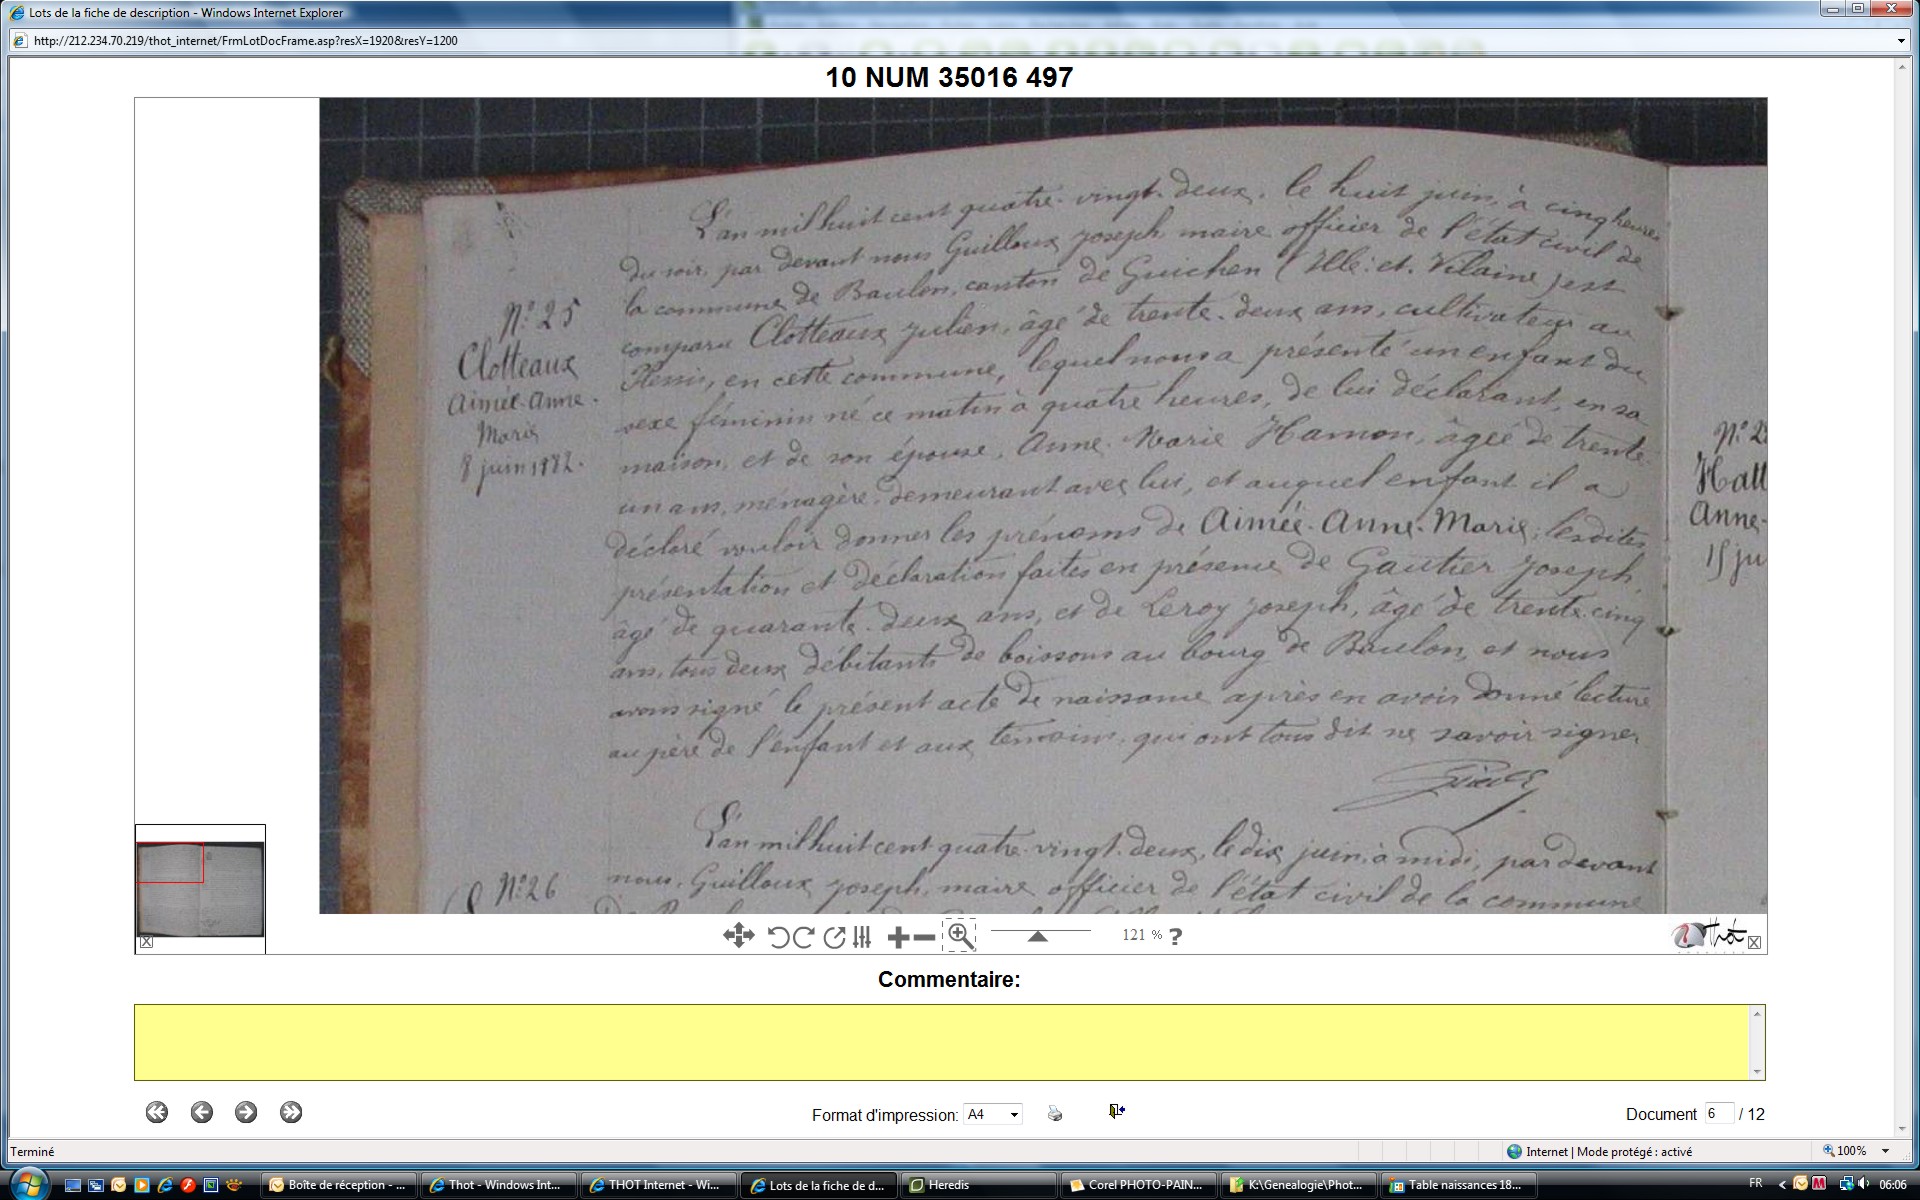 Lots de la fiche de description - Windows Internet Explorer
http://212.234.70.219/thot_internet/FrmLotDocFrame.asp?resX=1920&resY=1200
10 NUM 35016 497
L'an mil huit cent quatre-vingt-deux, le huit juin, à cinq heures
du soir, par devant nous Guilloux Joseph maire officier de l'état civil de
la commune de Baulon, canton de Guichen (Ille-et-Vilaine) est
comparu Clotteaux Julien, âgé de trente-deux ans, cultivateur au
Plessis, en cette commune, lequel nous a présenté un enfant du
sexe féminin né ce matin à quatre heures, de lui déclarant, en sa
maison, et de son épouse, Anne-Marie Hamon, âgée de trente-
un ans, ménagère, demeurant avec lui, et auquel enfant il a
déclaré vouloir donner les prénoms de Aimée-Anne-Marie; lesdites
présentation et déclaration faites en présence de Gautier Joseph,
âgé de quarante-deux ans, et de Leroy Joseph, âgé de trente-cinq
ans, tous deux débitants de boissons au bourg de Baulon, et nous
avons signé le présent acte de naissance après en avoir donné lecture
au père de l'enfant et aux témoins, qui ont tous dit ne savoir signer
N° 25
Clotteaux
Aimée-Anne-
Marie
8 juin 1882.
N° 2
Hatt
Anne-
15 ju
L'an mil huit cent quatre-vingt-deux, le dix juin, à midi, par devant
nous, Guilloux Joseph, maire officier de l'état civil de la commune
N° 26
121 % ?
Thot
Commentaire:
Format d'impression: A4
Document 6 / 12
Terminé
Internet | Mode protégé : activé
100%
Boîte de réception - ...
Thot - Windows Int...
THOT Internet - Wi...
Lots de la fiche de d...
Heredis
Corel PHOTO-PAIN...
K:\Genealogie\Phot...
Table naissances 18...
FR
06:06